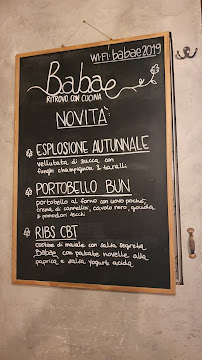 WI-FI: babae2019
Babae
RITROVO CON CUCINA
NOVITÀ:
ESPLOSIONE AUTUNNALE
vellutata di zucca con
funghi champignon & taralli
PORTOBELLO BUN
portobello al forno con uovo pochè,
crema di cannellini, cavolo nero, gouda
& pomodori secchi
RIBS CBT
costine di maiale con salsa segreta
Babae con patate novelle alla
paprica e salsa yogurt acida